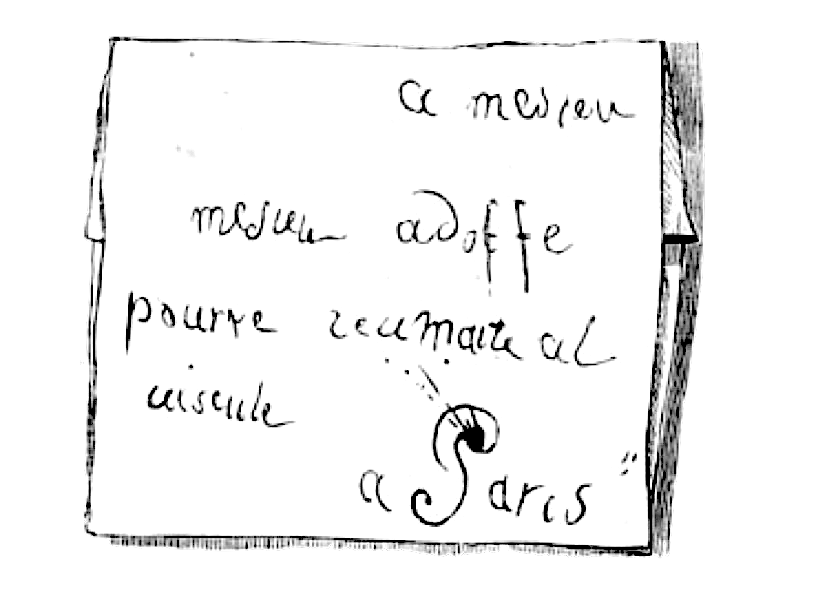 a mesieu
mesieu adoffe
pourre reumaite al
uiseule
a Paris "